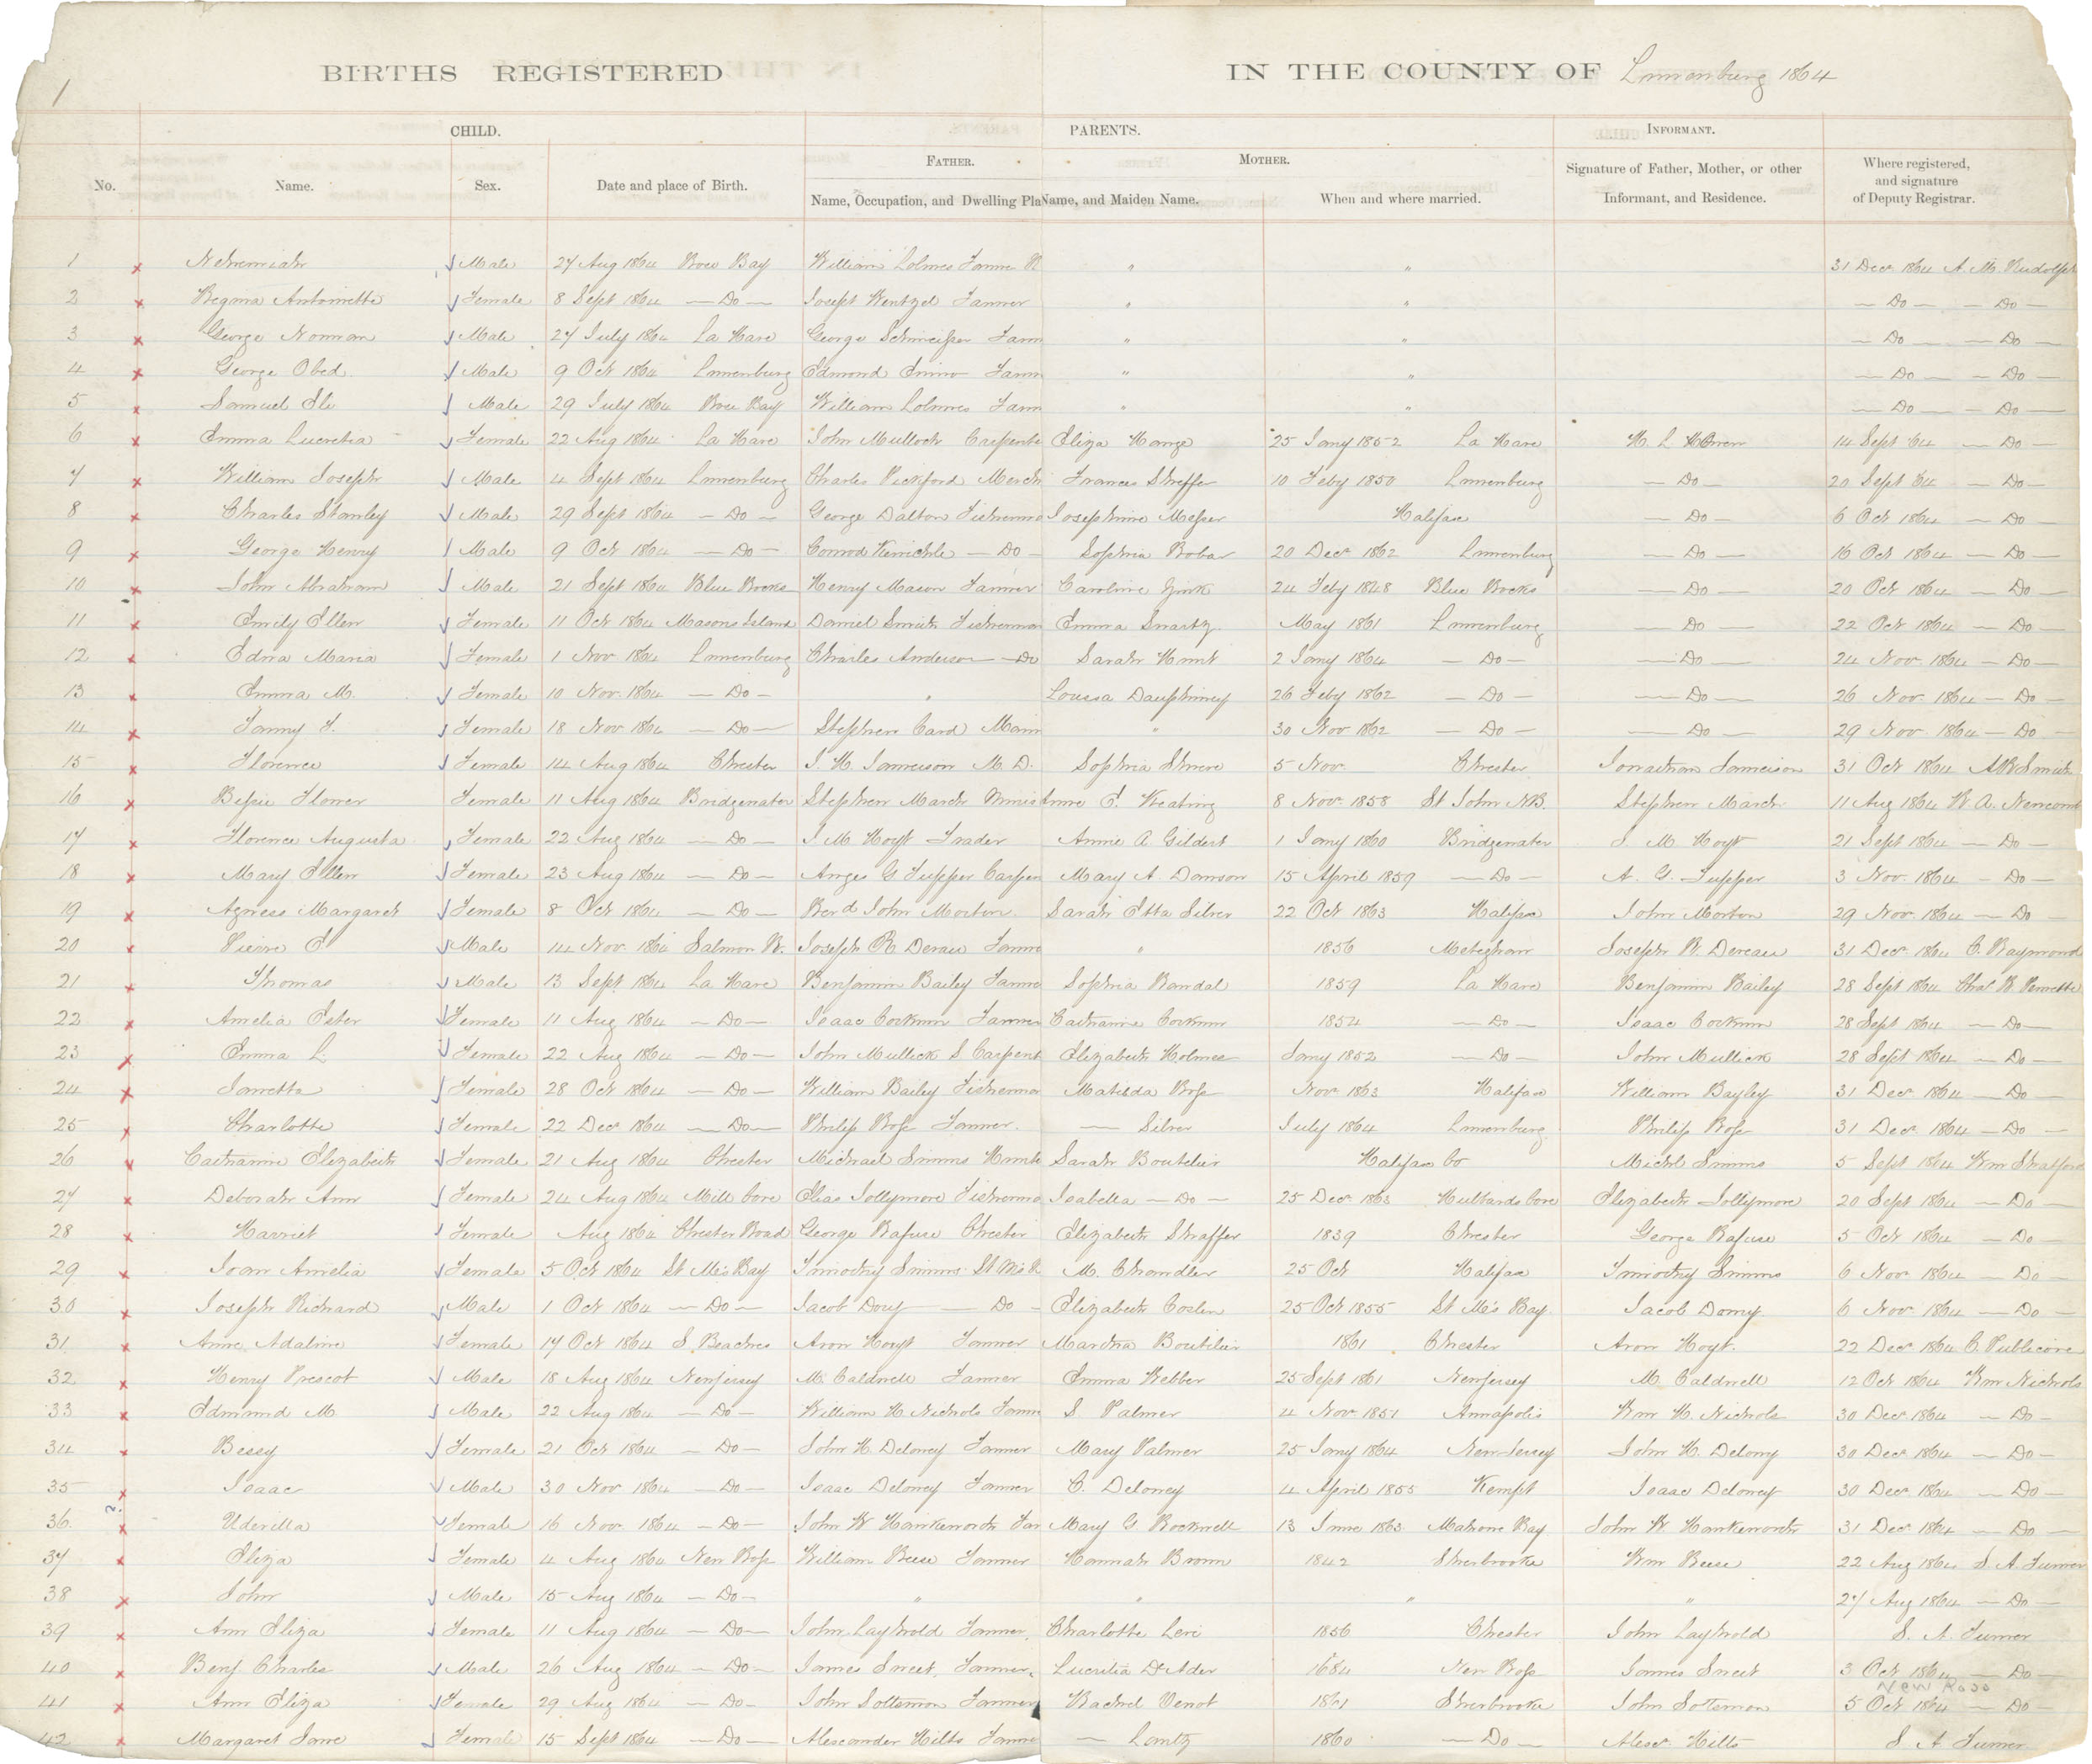 1
BIRTHS REGISTERED IN THE COUNTY OF Lunenburg 1864
CHILD. PARENTS. INFORMANT.
FATHER. MOTHER.
No. Name. Sex. Date and place of Birth. Name, Occupation, and Dwelling Pla Name, and Maiden Name. When and where married. Signature of Father, Mother, or other Informant, and Residence. Where registered, and signature of Deputy Registrar.
1 Nehemiah Male 27 Aug 1864 Rose Bay William Holmes Farmer " " 31 Decr 1864 A. M. Rudolph
2 Regina Antoinette Female 8 Sept 1864 — Do — Joseph Wentzel Farmer " " — Do — — Do —
3 George Norman Male 27 July 1864 La Have George Schmeisser Farm " " — Do — — Do —
4 George Obed Male 9 Oct 1864 Lunenburg Edmond Farm " " — Do — — Do —
5 Samuel Male 29 July 1864 Rose Bay William Farm " " — Do — — Do —
6 Emma Lucretia Female 22 Aug 1864 La Have John Mullock Carpente Eliza 25 Jany 1852 La Have 14 Sept 64 — Do —
7 William Joseph Male 4 Sept 1864 Lunenburg Charles Pickford Merch Frances Shaffer 10 Feby 1850 Lunenburg — Do — 20 Sept 64 — Do —
8 Charles Stanley Male 29 Sept 1864 — Do — George Dalton Fisherma Josephine Messer Halifax — Do — 6 Oct 1864 — Do —
9 George Henry Male 9 Oct 1864 — Do — Conrod — Do — Sophia Robar 20 Decr 1862 Lunenburg — Do — 16 Oct 1864 — Do —
10 John Abraham Male 21 Sept 1864 Blue Rocks Henry Mason Farmer Caroline Zink 24 Feby 1848 Blue Rocks — Do — 20 Oct 1864 — Do —
11 Emily Ellen Female 11 Oct 1864 Masons Island Daniel Smith Fisherman Emma Swartz May 1861 Lunenburg — Do — 22 Oct 1864 — Do —
12 Edna Maria Female 1 Nov 1864 Lunenburg Charles Anderson — Do Sarah Hunt 2 Jany 1864 — Do — — Do — 24 Nov 1864 — Do —
13 Emma M. Female 10 Nov. 1864 — Do — " Louisa Dauphiney 26 Feby 1862 — Do — — Do — 26 Nov. 1864 — Do —
14 Fanny J. Female 18 Nov 1864 — Do — Stephen Card " 30 Nov 1862 — Do — — Do — 29 Nov. 1864 — Do —
15 Florence Female 14 Aug 1864 Chester J. H. Jameison M. D. Sophia 5 Nov. Chester Jonathan Jameison 31 Oct 1864 Smith
16 Bessie Flower Female 11 Aug 1864 Bridgewater Stephen March Minis Anne E. Keating 8 Nov. 1858 St John N.B. Stephen March 11 Aug 1864 W. A. Newcomb
17 Florence Augusta Female 22 Aug 1864 — Do — J. M. Hoyt Trader Annie A Gildert 1 Jany 1860 Bridgewater J. M. Hoyt 21 Sept 1864 — Do —
18 Mary Ellen Female 23 Aug 1864 — Do — G. Tupper Carpen Mary A. Dawson 15 April 1859 — Do — A. G. Tupper 3 Nov. 1864 — Do —
19 Agness Margaret Female 8 Oct 1864 — Do — Revd John Morton Sarah Etta Silver 22 Oct 1863 Halifax John Morton 29 Nov. 1864 — Do —
20 Pierre E Male 14 Nov. 1864 Salmon R. Joseph R. Farme " 1856 Meteghan Joseph R. Dereau 31 Decr 1864 C. Raymond
21 Thomas Male 13 Sept 1864 La Have Benjamin Bailey Farme Sophia Randal 1859 La Have Benjamin Bailey 28 Sept 1864 Chas R. Pernette
22 Amelia Ester Female 11 Aug 1864 — Do — Isaac Corkum Farmer Catharine Corkum 1854 — Do — Isaac Corkum 28 Sept 1864 — Do —
23 Emma L. Female 22 Aug 1864 — Do — John Mullick S. Carpent Elizabeth Holmes Jany 1852 — Do — John Mullick 28 Sept 1864 — Do —
24 Janetta Female 28 Oct 1864 — Do — William Bailey Fisherma Matilda Ross Nov. 1863 Halifax William Bayley 31 Decr 1864 — Do —
25 Charlotte Female 22 Decr 1864 — Do — Philip Ross Farmer — Silver July 1864 Lunenburg Philip Ross 31 Decr 1864 — Do —
26 Catharine Elizabeth Female 21 Aug 1864 Chester Michael Simms Sarah Boutelier Halifax Co Michl Simms 5 Sept 1864 Wm Shatford
27 Deborah Ann Female 24 Aug 1864 Mill Cove Elias Jollymore Fisherma Isabella — Do — 25 Decr 1863 Hubbards Cove Elizabeth Jollymore 20 Sept 1864 — Do —
28 Harriet Female Aug 1864 Chester Road George Rafuse Chester Elizabeth Shaffer 1839 Chester George Rafuse 5 Oct 1864 — Do —
29 Joan Amelia Female 5 Oct 1864 St M's Bay Timothy Simms St M's B M. Chandler 25 Oct Halifax Timothy Simms 6 Nov 1864 — Do —
30 Joseph Richard Male 1 Oct 1864 — Do — Jacob — Do — Elizabeth 25 Oct 1855 St M's Bay Jacob 6 Nov. 1864 — Do —
31 Anne Adaline Female 17 Oct 1864 S Beaches Aron Hoyt Farmer Martha Boutilier 1861 Chester Aron Hoyt. 22 Decr 1864 C. Publicover
32 Henry Prescot Male 18 Aug 1864 New Jersey M. Caldwell Farmer Emma Webber 25 Sept 1861 New Jersey M. Caldwell 12 Oct 1864 Wm Nichols
33 Edmund M. Male 22 Aug 1864 — Do — William H. Nichols Farm S. Palmer 4 Nov. 1851 Annapolis Wm H. Nichols 30 Decr 1864 — Do —
34 Bessy Female 21 Oct 1864 — Do — John H. Deloney Farmer Mary Palmer 25 Jany 1864 New Jersey John H. Delony 30 Decr 1864 — Do —
35 Isaac Male 30 Nov 1864 — Do — Isaac Deloney Farmer C. Deloney 4 April 1855 Kempt Isaac Deloney 30 Decr 1864 — Do —
36 ? Uderilla Female 16 Nov. 1864 — Do — John W Hawkeworth Far Mary G. Rockwell 13 June 1863 Mahone Bay John W Hawkeworth 31 Decr 1864 — Do —
37 Eliza Female 4 Aug 1864 New Ross William Reese Farmer Hannah Brown 1842 Sherbrooke Wm Reese 22 Aug 1864 S. A. Turner
38 John Male 15 Aug 1864 — Do — " " " " 27 Aug 1864 — Do —
39 Ann Eliza Female 11 Aug 1864 — Do — John Layhold Farmer. Charlotte Levi 1856 Chester John Layhold S. A. Turner
40 Benj Charles Male 26 Aug 1864 — Do — James Sweet, Farmer. Lucretia 1684 New Ross James Sweet 3 Oct 1864 — Do —
New Ross
41 Ann Eliza Female 29 Aug 1864 — Do — John Farmer Rachel Venot 1861 Sherbrooke John 5 Oct 1864 — Do —
42 Margaret Jane Female 15 Sept 1864 — Do — Alexander Hilts Farme — Lantz 1860 — Do — Alexr. Hilts S. A Turner